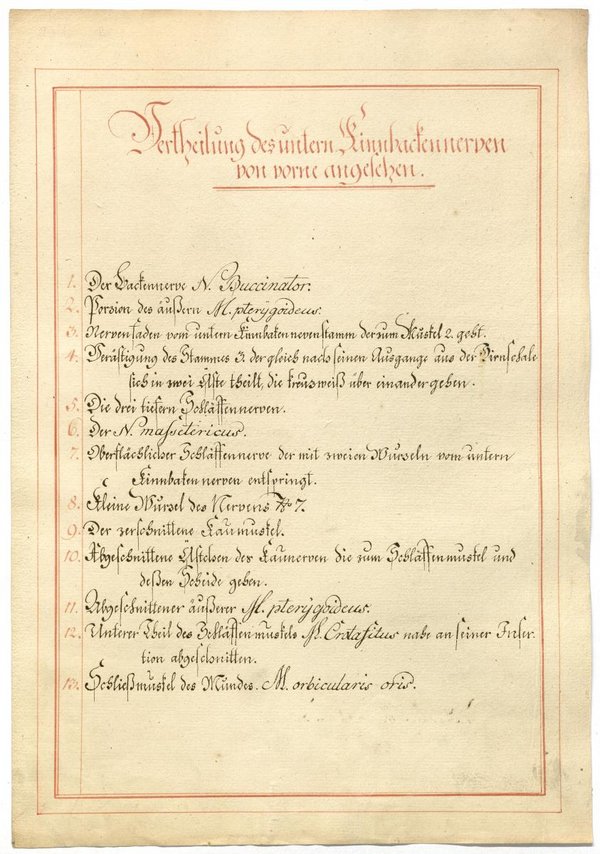 Vertheilung des untern Kinnbackennerven
von vorne angesehen.
1. Der Backennerve N. Buccinator.
2. Porzion des äußern M. pterÿgoideus.
3. Nervenfaden vom untern Kinnbakennervenstamm der zum Muskel 2. geht.
4. Verästigung des Stammes 3. der gleich nach seinen Ausgange aus der Hirnschale
sich in zwei Äste theilt, die kreuzweiß über einander gehen.
5. Die drei tiefern Schläffennerven.
6. Der N. massetericus.
7. Oberflächlicher Schläffennerve der mit zweien Wurzeln vom untern
Kinnbakennerven entspringt.
8. Kleine Wurzel des Nervens No 7.
9. Der zerschnittene Kaumuskel.
10. Abgeschnittene Ästchen des Kaunerven die zum Schläffenmuskel und
deßen Scheide gehen.
11. Abgeschnittener äußerer M. pterÿgoideus.
12. Unterer Theil des Schläffenmuskels M. Crotafitus nahe an seiner Inser-
tion abgeschnitten.
13. Schließmuskel des Mundes. M. orbicularis oris.